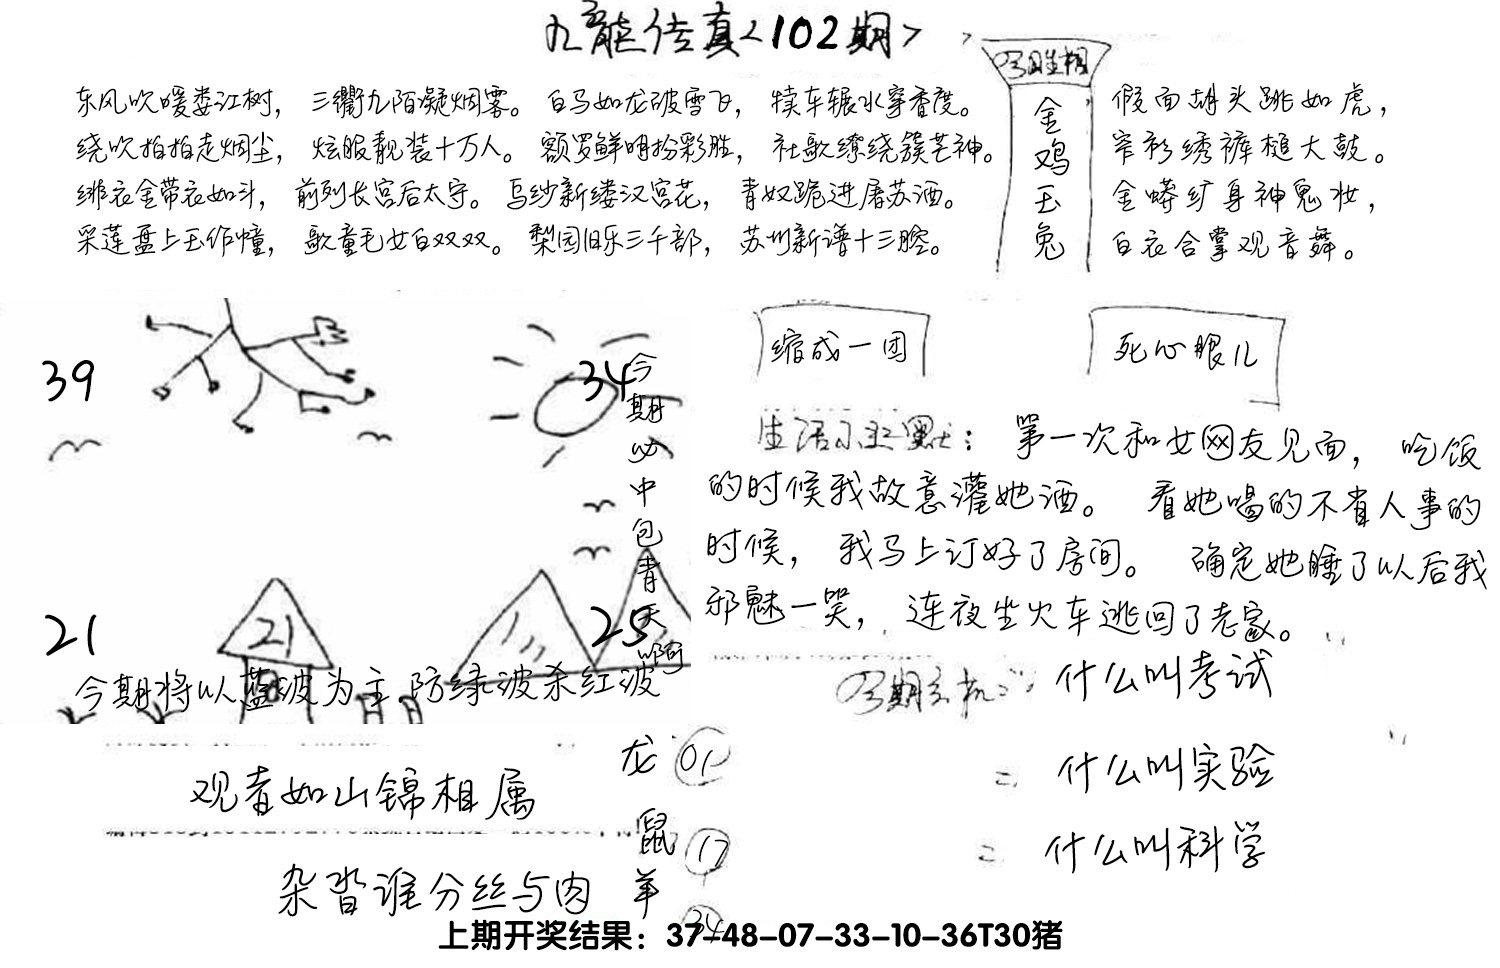 九龙传真<102期>
东风吹暖娄江树，三衢九陌凝烟雾。白马如龙破雪飞，犊车辗水穿香度。
绕吹拍拍走烟尘，炫服靓装十万人。额罗鲜明扮彩胜，社歌缭绕簇芒神。
绯衣金带衣如斗，前列长宫后太守。乌纱新缕汉宫花，青奴跪进屠苏酒。
采莲盘上玉作幢，歌童毛女白双双。梨园旧乐三千部，苏州新谱十三腔。
金鸡玉兔
假面胡头跳如虎，
窄衫绣裤槌大鼓。
金蟒纩身神鬼妆，
白衣合掌观音舞。
39
34
今期必中包青天啊
21
21
25
今期将以蓝波为主.防绿波杀红波
缩成一团
死心眼儿
生活小幽默：第一次和女网友见面，吃饭
的时候我故意灌她酒。看她喝的不省人事的
时候，我马上订好了房间。确定她睡了以后我
邪魅一笑，连夜坐火车逃回了老家。
什么叫考试
= 什么叫实验
= 什么叫科学
观者如山锦相属
杂沓谁分丝与肉
龙 01
鼠 17
羊 34
上期开奖结果：37-48-07-33-10-36T30猪